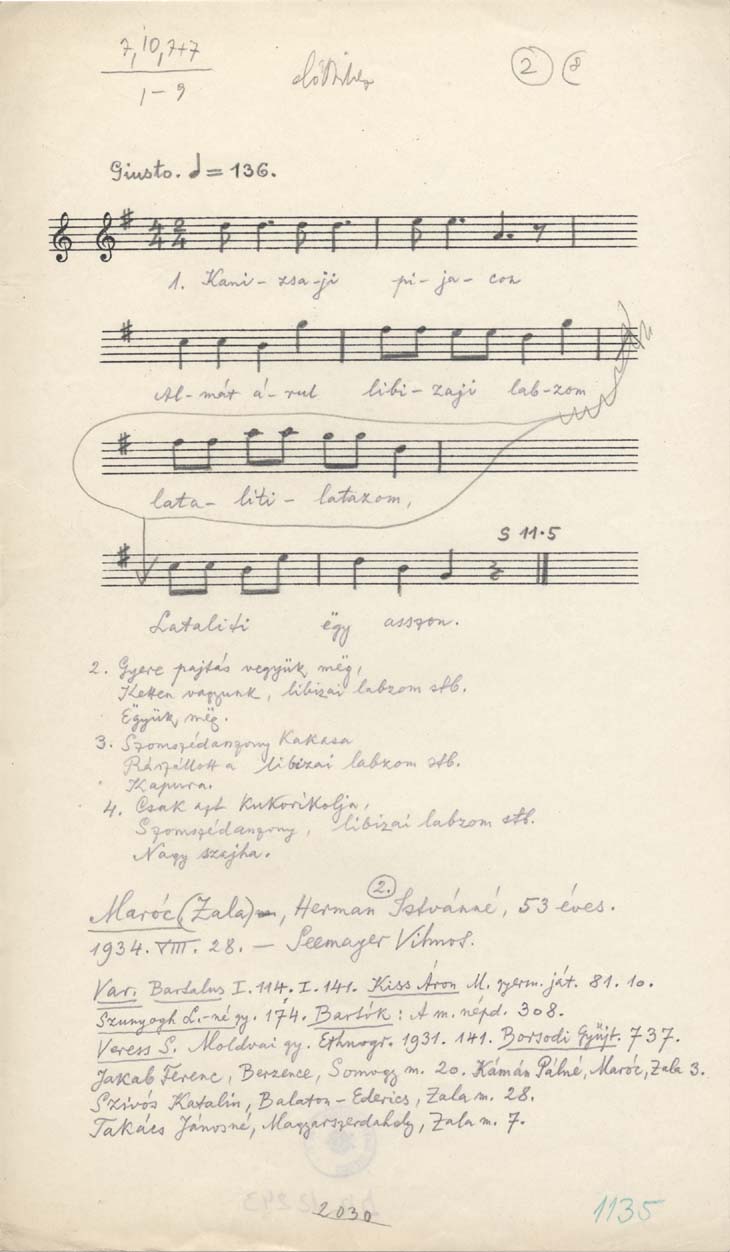 7, 10, 7+7
1 – 9
2 8
Giusto. = 136.
4 2
4 4
1. Kani – zsa – ji pi – ja – con
Al – mát á – rul libi – zaji lab – zom
lata – liti – latazom,
S 11·5
Lataliti ëgy asszon.
2. Gyere pajtás vegyük mëg,
Ketten vagyunk, libizai labzom stb.
Ëgyük mëg.
3. Szomszédasszony kakasa
Rászállott a libizai labzom stb.
Kapura.
4. Csak azt kukorikolja,
Szomszédasszony, libizai labzom stb.
Nagy szajha.
Maróc (Zala), Herman 2. Istvánné, 53 éves.
1934. VIII. 28. – Seemayer Vilmos.
Var. Bartalus I. 114. I. 141. Kiss Áron M. gyerm. ját. 81. 10.
Szunyogh L.-né gy. 174. Bartók: A m. népd. 308.
Veress S. Moldvai gy. Ethnogr. 1931. 141. Borsodi Gyüjt. 737.
Jakab Ferenc, Berzence, Somogy m. 20. Kámán Pálné, Maróc, Zala 3.
Szivós Katalin, Balaton-Ederics, Zala m. 28.
Takács Jánosné, Magyarszerdahely, Zala m. 7.
2030
1135